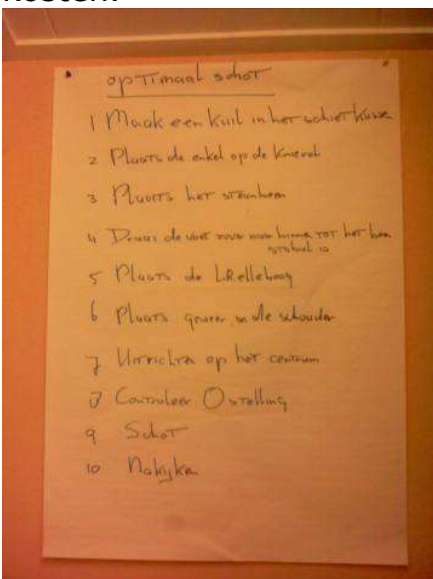 optimaal schot
1 Maak een kuil in het schietkussen
2 Plaats de enkel op de knierol
3 Plaats het steunbeen
4 Draai de voet naar binnen tot het been
stabiel is
5 Plaats de elleboog
6 Plaats geweer in de schouder
7 Uitrichten op het centrum
8 Controleer 0 stelling
9 Schot
10 Nakijken